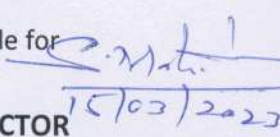 le for
15/03/2023
CTOR